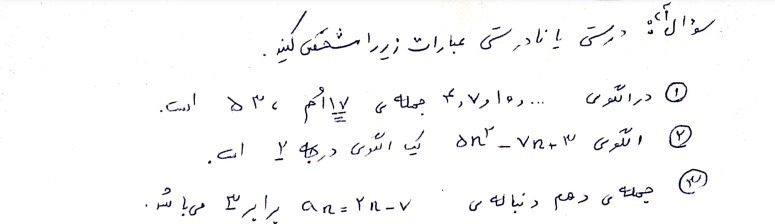 سؤال ۱: درستی یا نادرستی عبارات زیر را مشخص کنید.
① در الگوی ... ,۱۰ و ۷ و ۴ جمله‌ی ۱۷اُم ، ۵۳ است.
② الگوی ۵n² - ۷n + ۳ یک الگوی درجه ۲ است.
③ جمله‌ی دهم دنباله‌ی aₙ = ۲n - ۷ برابر ۳ می‌باشد.